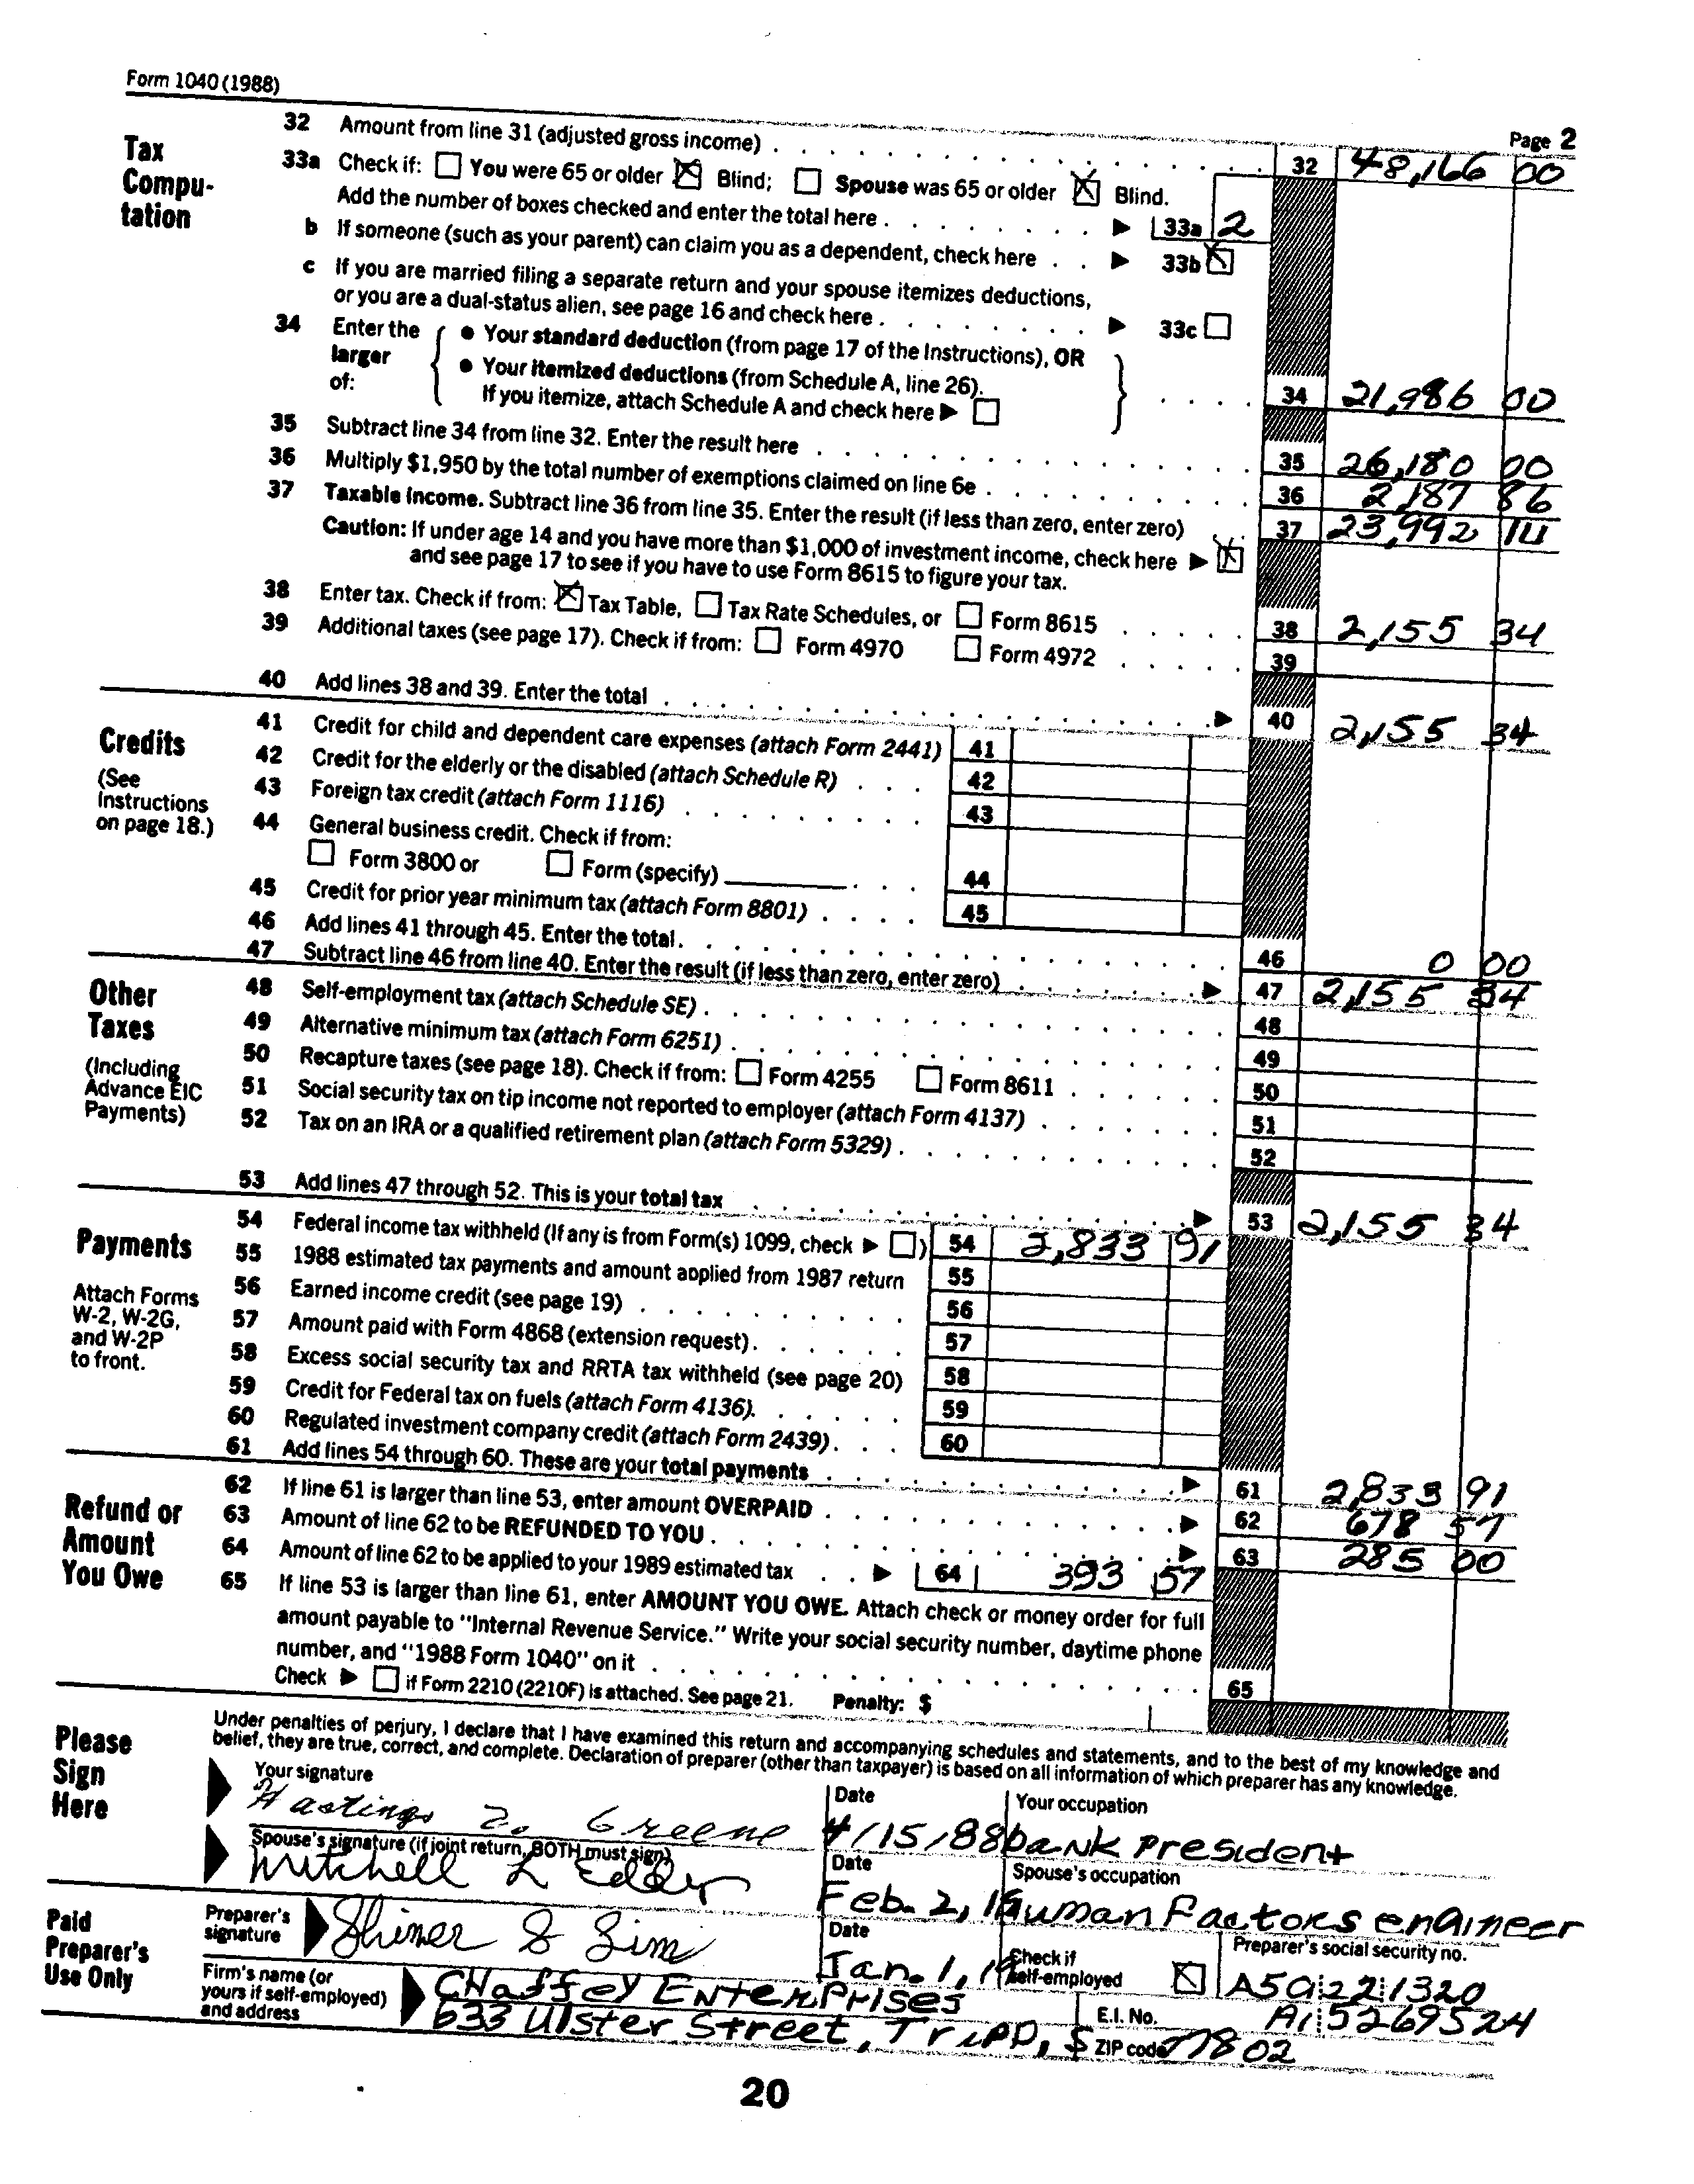 Form 1040 (1988)
Page 2
Tax Compu-tation
32 Amount from line 31 (adjusted gross income) 32 48,166 00
33a Check if: You were 65 or older Blind; Spouse was 65 or older Blind.
Add the number of boxes checked and enter the total here 33a 2
b If someone (such as your parent) can claim you as a dependent, check here 33b
c If you are married filing a separate return and your spouse itemizes deductions,
or you are a dual-status alien, see page 16 and check here 33c
34 Enter the larger of:
Your standard deduction (from page 17 of the Instructions), OR
Your itemized deductions (from Schedule A, line 26).
If you itemize, attach Schedule A and check here
34 21,986 00
35 Subtract line 34 from line 32. Enter the result here 35 26,180 00
36 Multiply $1,950 by the total number of exemptions claimed on line 6e 36 2,187 86
37 Taxable income. Subtract line 36 from line 35. Enter the result (if less than zero, enter zero) 37 23,992 14
Caution: If under age 14 and you have more than $1,000 of investment income, check here
and see page 17 to see if you have to use Form 8615 to figure your tax.
38 Enter tax. Check if from: Tax Table, Tax Rate Schedules, or Form 8615 38 2,155 34
39 Additional taxes (see page 17). Check if from: Form 4970 Form 4972 39
40 Add lines 38 and 39. Enter the total 40 2,155 34
Credits
(See Instructions on page 18.)
41 Credit for child and dependent care expenses (attach Form 2441) 41
42 Credit for the elderly or the disabled (attach Schedule R) 42
43 Foreign tax credit (attach Form 1116) 43
44 General business credit. Check if from:
Form 3800 or Form (specify) 44
45 Credit for prior year minimum tax (attach Form 8801) 45
46 Add lines 41 through 45. Enter the total 46 0 00
47 Subtract line 46 from line 40. Enter the result (if less than zero, enter zero) 47 2,155 34
Other Taxes
(Including Advance EIC Payments)
48 Self-employment tax (attach Schedule SE) 48
49 Alternative minimum tax (attach Form 6251) 49
50 Recapture taxes (see page 18). Check if from: Form 4255 Form 8611 50
51 Social security tax on tip income not reported to employer (attach Form 4137) 51
52 Tax on an IRA or a qualified retirement plan (attach Form 5329) 52
53 Add lines 47 through 52. This is your total tax 53 2,155 34
Payments
Attach Forms W-2, W-2G, and W-2P to front.
54 Federal income tax withheld (If any is from Form(s) 1099, check ) 54 2,833 91
55 1988 estimated tax payments and amount applied from 1987 return 55
56 Earned income credit (see page 19) 56
57 Amount paid with Form 4868 (extension request) 57
58 Excess social security tax and RRTA tax withheld (see page 20) 58
59 Credit for Federal tax on fuels (attach Form 4136). 59
60 Regulated investment company credit (attach Form 2439) 60
61 Add lines 54 through 60. These are your total payments 61 2,833 91
Refund or Amount You Owe
62 If line 61 is larger than line 53, enter amount OVERPAID 62 678 57
63 Amount of line 62 to be REFUNDED TO YOU 63 285 00
64 Amount of line 62 to be applied to your 1989 estimated tax 64 393 57
65 If line 53 is larger than line 61, enter AMOUNT YOU OWE. Attach check or money order for full
amount payable to "Internal Revenue Service." Write your social security number, daytime phone
number, and "1988 Form 1040" on it 65
Check if Form 2210 (2210F) is attached. See page 21. Penalty: $
Please Sign Here
Under penalties of perjury, I declare that I have examined this return and accompanying schedules and statements, and to the best of my knowledge and
belief, they are true, correct, and complete. Declaration of preparer (other than taxpayer) is based on all information of which preparer has any knowledge.
Your signature Date Your occupation
Hastings Z. Greene 4/15/88 bank President
Spouse's signature (if joint return, BOTH must sign) Date Spouse's occupation
Mitchell L Feb. 2, 19 Human Factors engineer
Paid Preparer's Use Only
Preparer's signature Shiner S Sim Date Jan. 1, 19 Check if self-employed Preparer's social security no. A5C 22 1320
Firm's name (or yours if self-employed) and address CHaffey EnterPrises E.I. No. A1 5269524
633 Ulster Street, Tripp, S ZIP code 77802
20